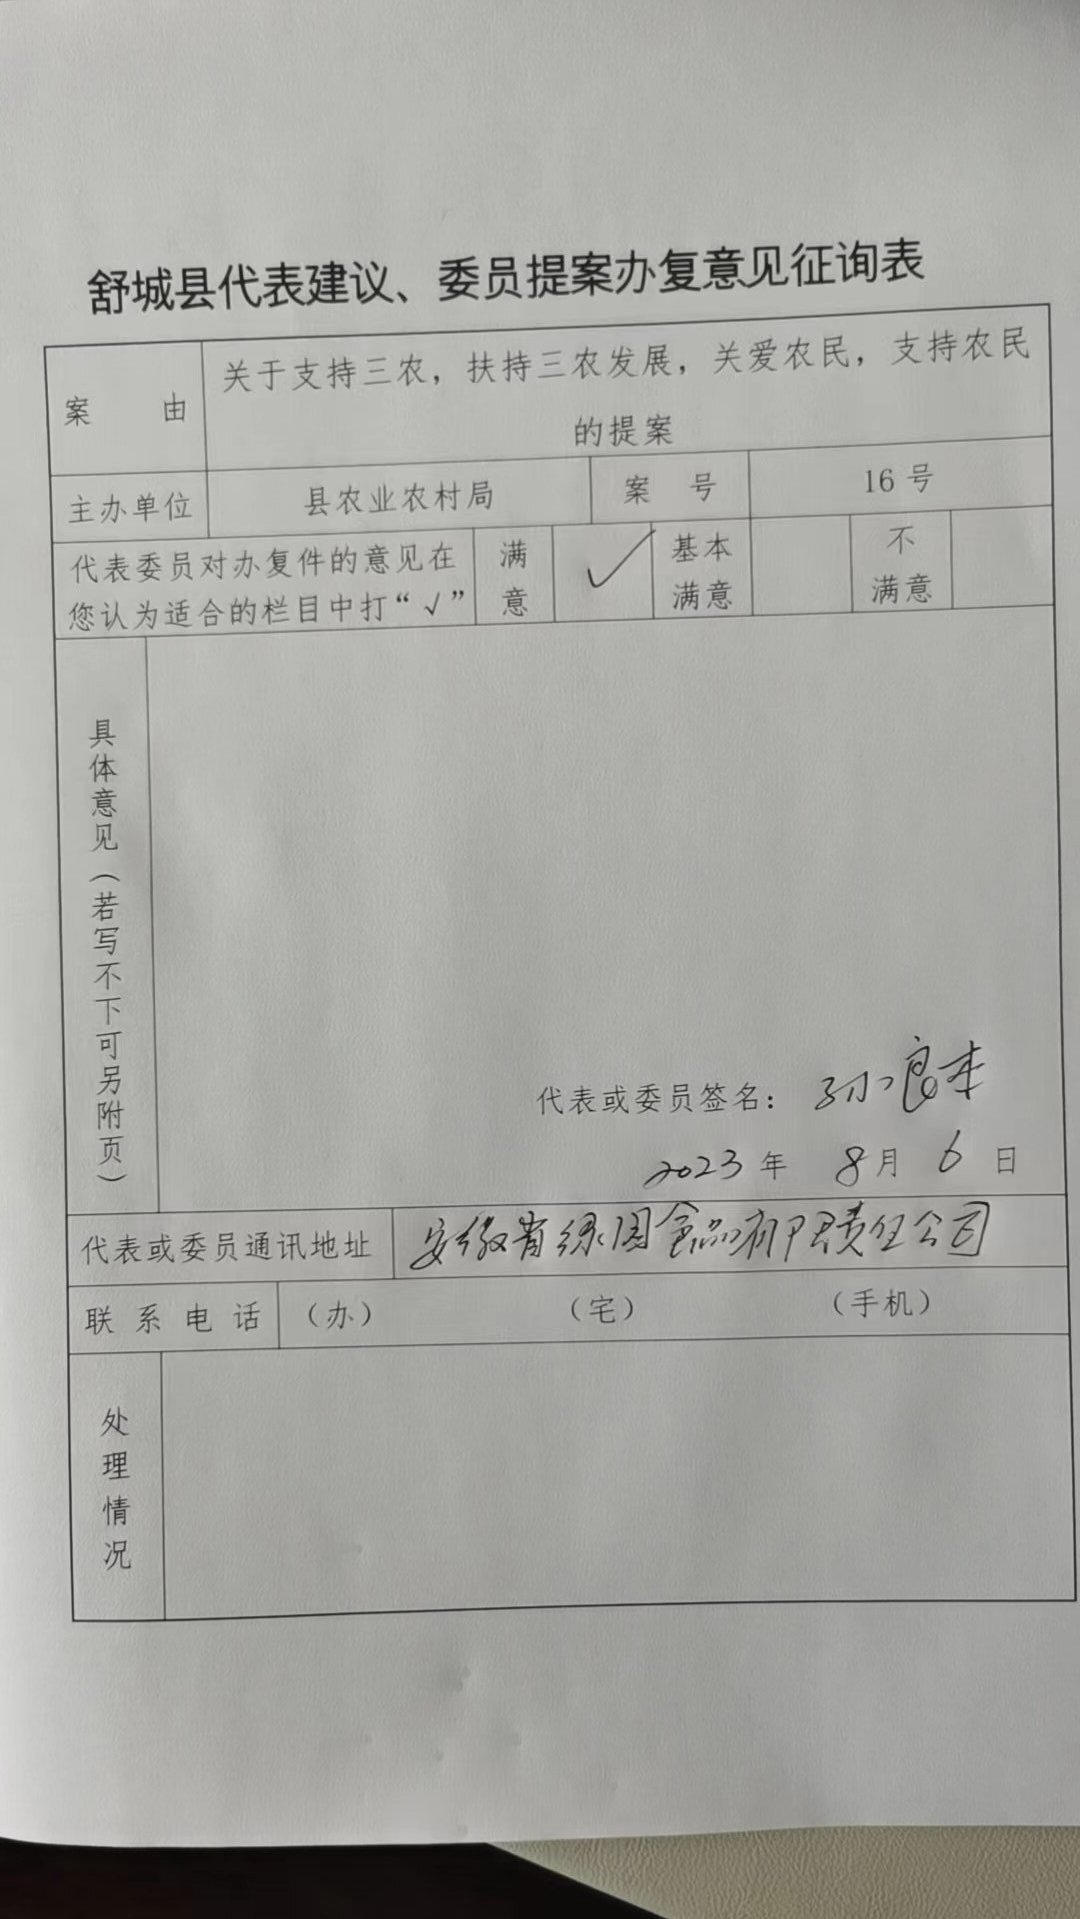 舒城县代表建议、委员提案办复意见征询表
案 由
关于支持三农，扶持三农发展，关爱农民，支持农民
的提案
主办单位
县农业农村局
案 号
16 号
代表委员对办复件的意见在
您认为适合的栏目中打“√”
满
意
✓
基本
满意
不
满意
具体意见（若写不下可另附页）
代表或委员签名：孙良本
2023 年 8 月 6 日
代表或委员通讯地址
安徽省绿园食品有限责任公司
联 系 电 话
（办）
（宅）
（手机）
处理情况